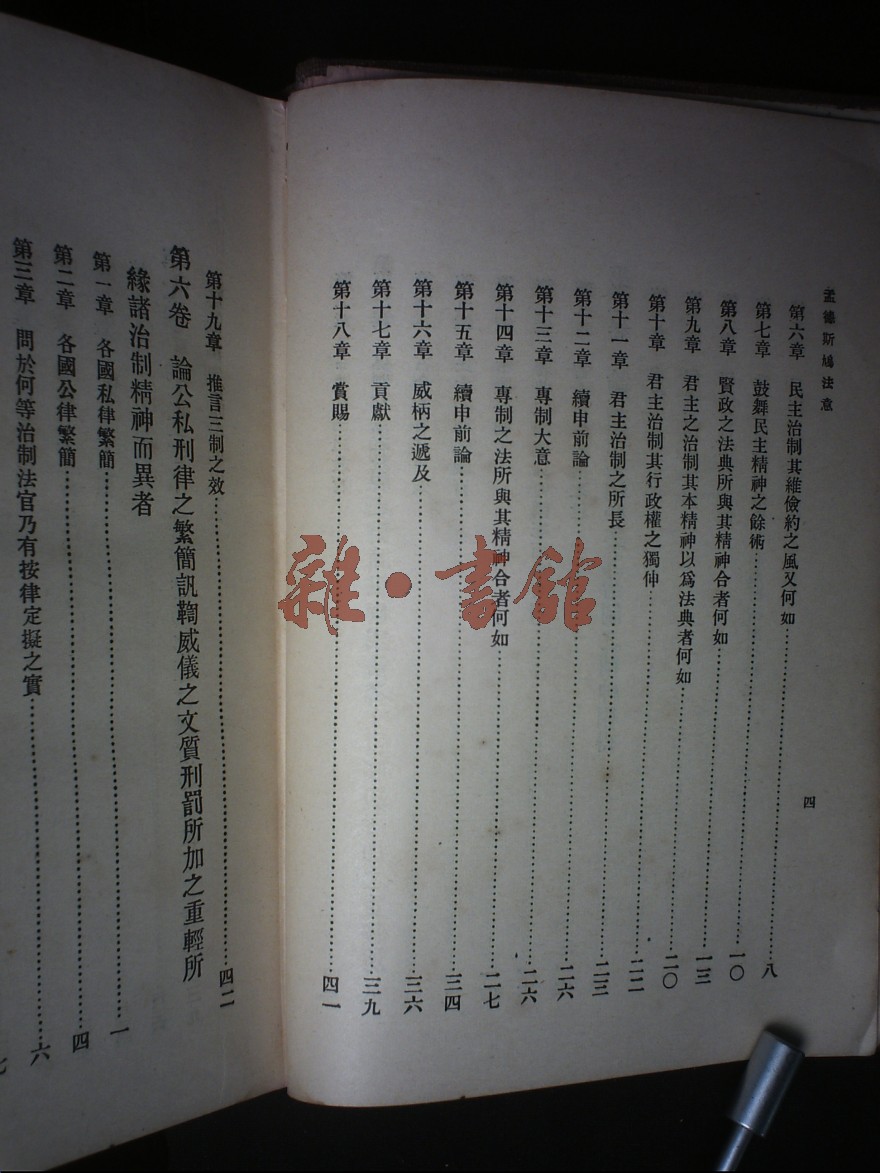 孟德斯鳩法意
四
第六章 民主治制其維儉約之風又何如
第七章 鼓舞民主精神之餘術……八
第八章 賢政之法典所與其精神合者何如……一〇
第九章 君主之治制其本精神以爲法典者何如……一三
第十章 君主治制其行政權之獨伸……二〇
第十一章 君主治制之所長……二二
第十二章 續申前論……二三
第十三章 專制大意……二六
第十四章 專制之法所與其精神合者何如……二六
第十五章 續申前論……二七
第十六章 威柄之遞及……三四
第十七章 貢獻……三六
第十八章 賞賜……三九
四一
第十九章 推言三制之效……四二
第六卷 論公私刑律之繁簡訊鞫威儀之文質刑罰所加之重輕所
緣諸治制精神而異者
第一章 各國私律繁簡……一
第二章 各國公律繁簡……四
第三章 問於何等治制法官乃有按律定擬之實……六
七
雜·書館